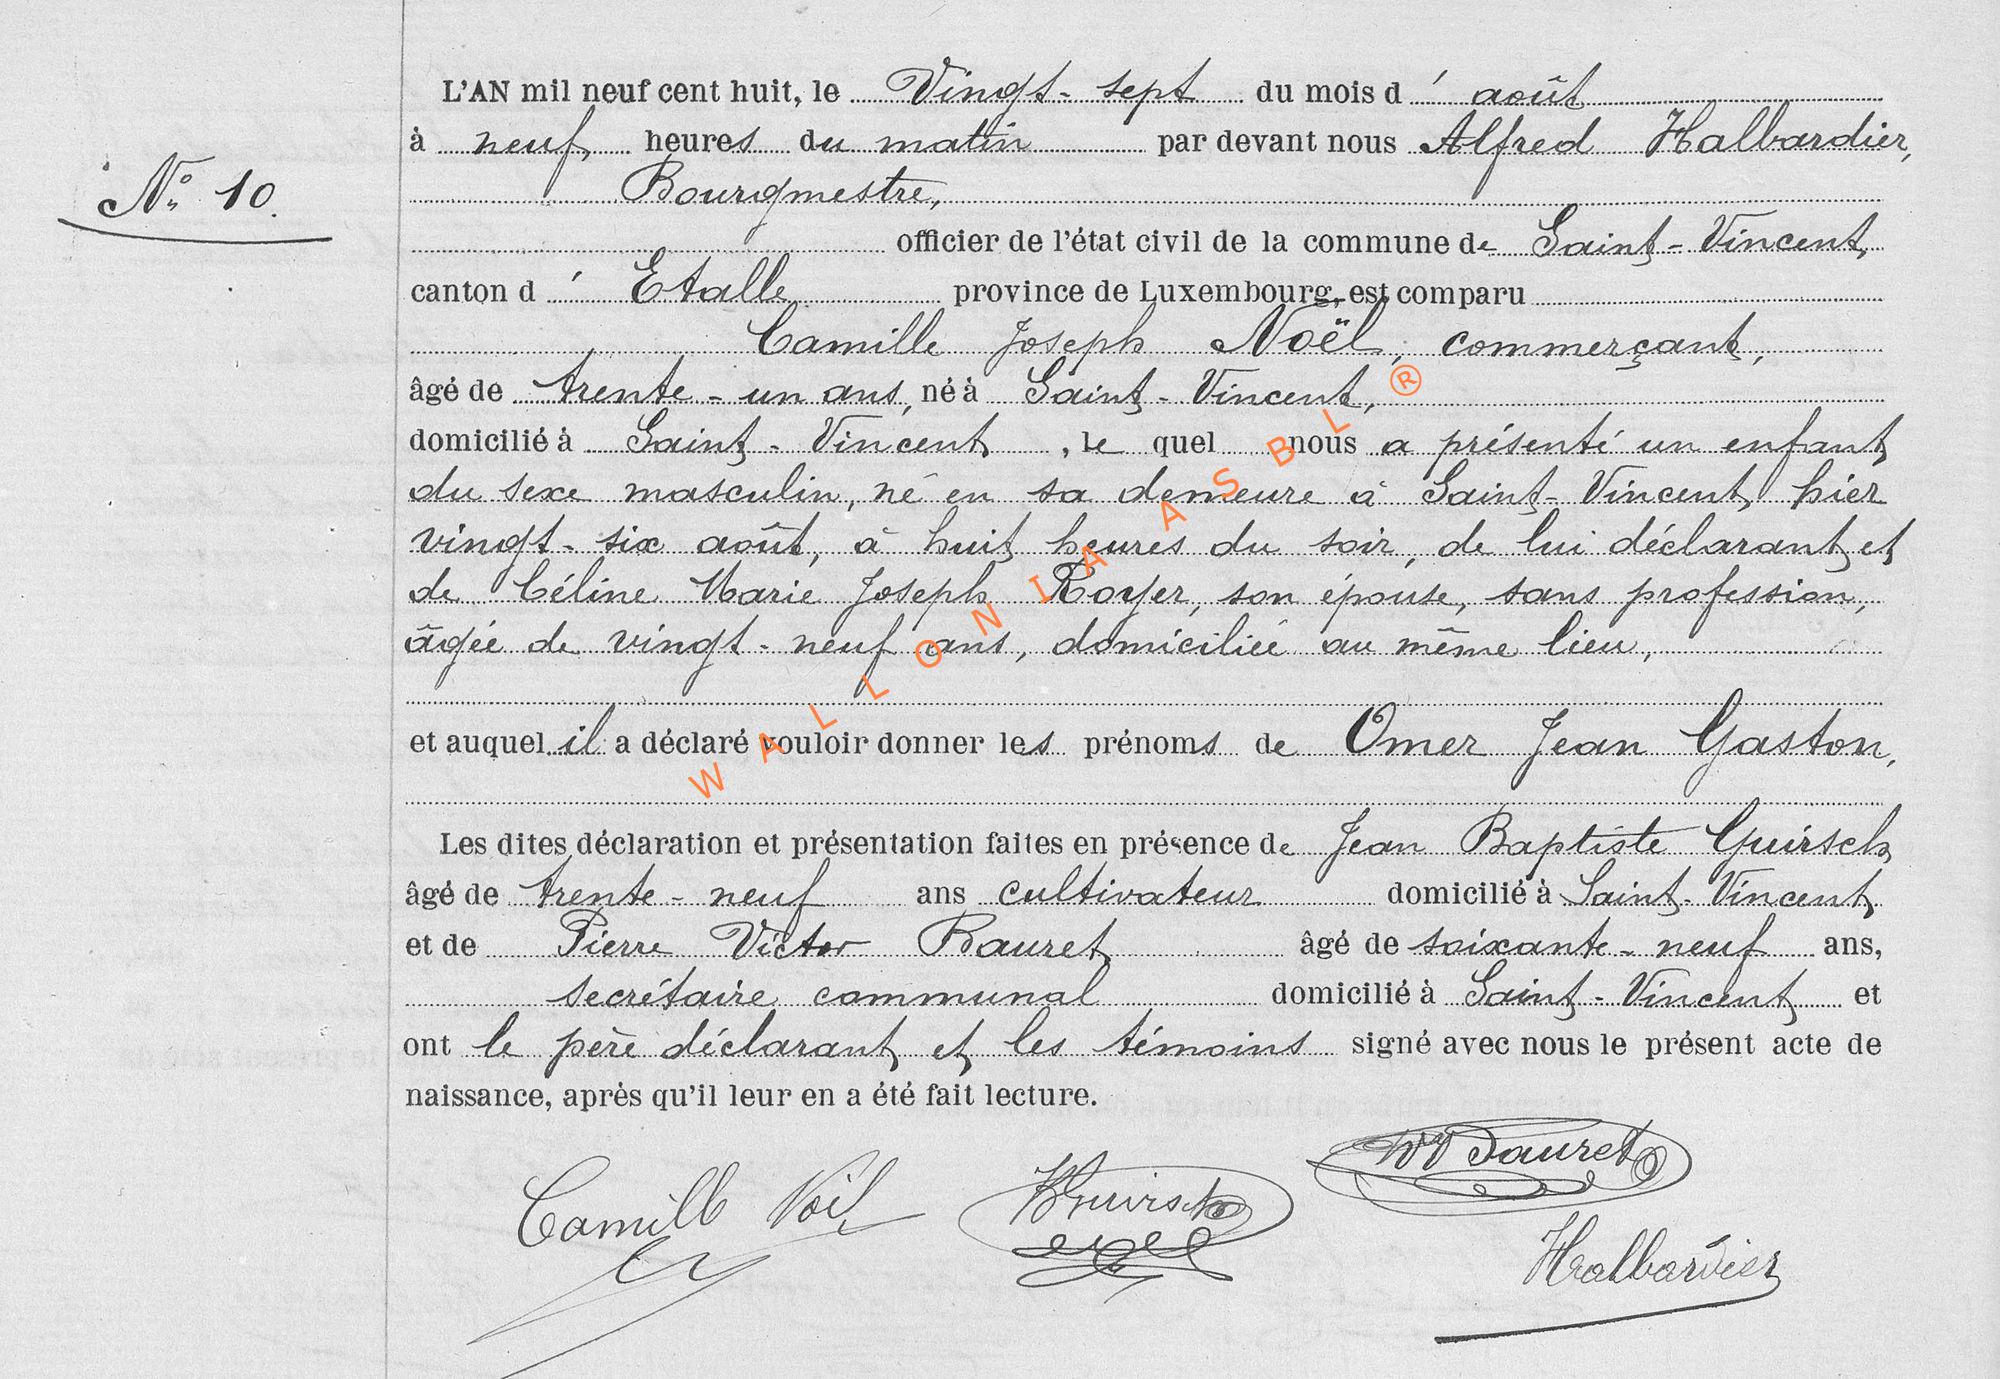 L'AN mil neuf cent huit, le Vingt-sept du mois d' août
à neuf heures du matin par devant nous Alfred Halbardier,
Nº 10.
Bourgmestre,
officier de l'état civil de la commune de Saint-Vincent,
canton d' Etalle province de Luxembourg, est comparu
Camille Joseph Noël, commerçant,
âgé de trente-un ans, né à Saint-Vincent,
domicilié à Saint-Vincent, le quel nous a présenté un enfant
du sexe masculin, né en sa demeure à Saint-Vincent, hier
vingt-six août, à huit heures du soir, de lui déclarant et
de Céline Marie Joseph Royer, son épouse, sans profession,
âgée de vingt-neuf ans, domiciliée au même lieu,
et auquel il a déclaré vouloir donner les prénoms de Omer Jean Gaston,
Les dites déclaration et présentation faites en présence de Jean Baptiste Guirsch
âgé de trente-neuf ans cultivateur domicilié à Saint-Vincent
et de Pierre Victor Bauret âgé de soixante-neuf ans,
secrétaire communal domicilié à Saint-Vincent et
ont le père déclarant et les témoins signé avec nous le présent acte de
naissance, après qu'il leur en a été fait lecture.
Camille Noël Guirsch Bauret
Halbardier
WALLONIA ASBL ®